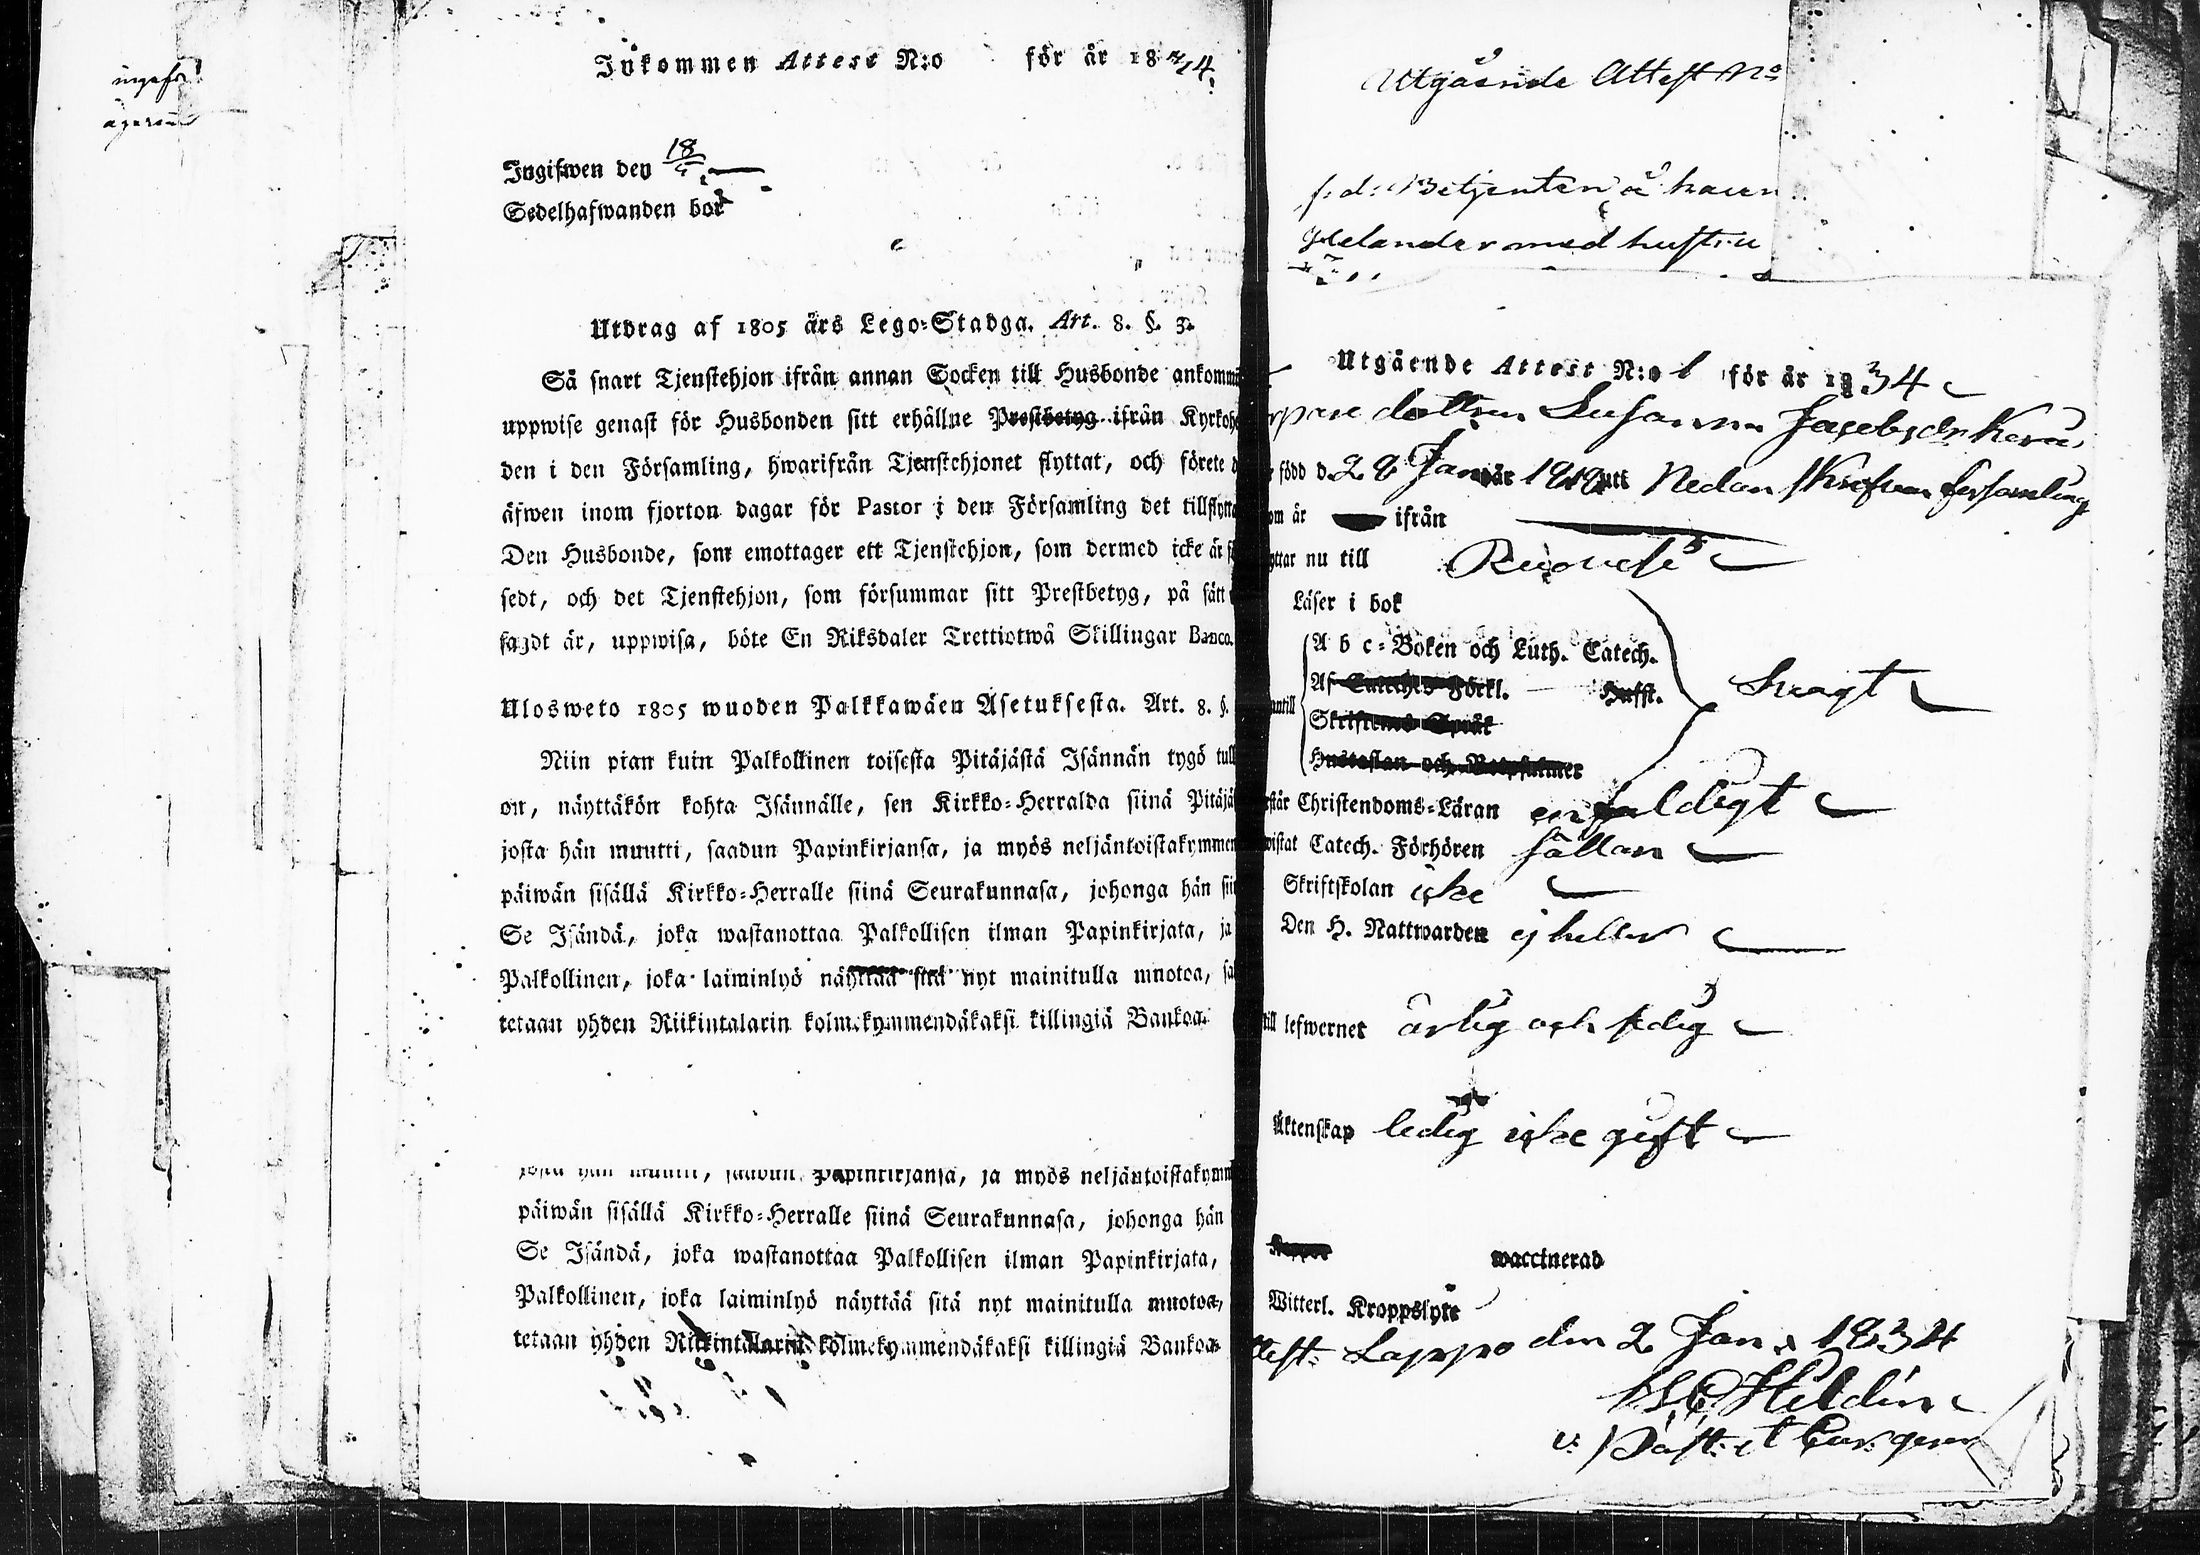 ägorna
Inkommen Attest N:o för år 18
Ingifwen den 18
Sedelhafwanden bor
Utdrag af 1805 års Lego-Stadga. Art. 8. §. 3.
Så snart Tjenstehjon ifrån annan Socken till Husbonde
uppwise genast för Husbonden sitt erhållne Prestbetyg ifrån
den i den Församling, hwarifrån Tjenstehjonet flyttat, och förete
äfwen inom fjorton dagar för Pastor i den Församling det
Den Husbonde, som emottager ett Tjenstehjon, som dermed icke är
sedt, och det Tjenstehjon, som försummar sitt Prestbetyg, på sätt
sagdt är, uppwisa, böte En Riksdaler Trettiotwå Skillingar Banco.
Ulosweto 1805 wuoden Palkkawäen Asetuksesta. Art. 8. §.
Niin pian kuin Palkollinen toisesta Pitäjästä Isännän tygö
on, näyttäkön kohta Isännälle, sen Kirkko-Herralda siinä
josta hän muutti, saadun Papinkirjansa, ja myös neljäntoistakymmen
päiwän sisällä Kirkko-Herralle siinä Seurakunnasa, johonga hän
Se Isändä, joka wastanottaa Palkollisen ilman Papinkirjata, ja
Palkollinen, joka laiminlyö näyttää sitä nyt mainitulla muotoa,
tetaan yhden Riikintalarin kolmekymmendäkaksi killingiä Bankoa.
josta hän muutti, saadun Papinkirjansa, ja myös neljäntoistakymm
päiwän sisällä Kirkko-Herralle siinä Seurakunnasa, johonga hän
Se Isändä, joka wastanottaa Palkollisen ilman Papinkirjata,
Palkollinen, joka laiminlyö näyttää sitä nyt mainitulla muotoa,
tetaan yhden Riikintalarin kolmekymmendäkaksi killingiä Bankoa.
Utgående Attest No
f: d: Betjenten
med hustru
Utgående Attest N:o 1 för år 1834
dottren Susanna Jacobsdr
född d. 28 Januar 1818 uti Nedanskrefven församling
om är ifrån
nu till Ruovesi
Läser i bok
A b c-Boken och Luth. Catech.
Af Catech. Förkl. Hufst. Swagt
Skriftenes Språk
Hustaflan och Botpsalmer
Christendoms-Läran enfaldigt
Catech. Förhören sällan
Skriftskolan icke
Den H. Nattwarden ej heller
till lefwernet ärlig och sedig
Äktenskap ledig icke gift
Koppor waccinerad
Witterl. Kroppslyte
Lappo den 2 Jan. 1834